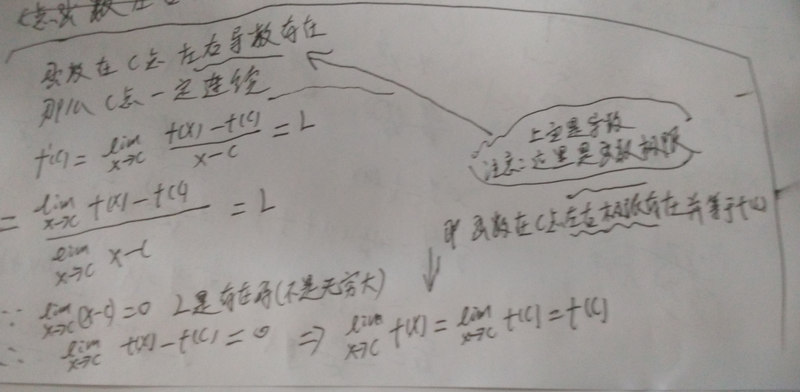 函数在C点左右导数存在
则从C点一定连续
f'(c) = lim x→c f(x)-f(c) / x-c = L
= lim x→c f(x)-f(c) / lim x→c x-c = L
上空是导数
注意:这里是函数极限
即 函数在C点左右极限存在并等于f(c)
∵ lim x→c (x-c)=0 L是存在的(不是无穷大)
∴ lim x→c f(x)-f(c)=0 ⇒ lim x→c f(x) = lim x→c f(c) = f(c)